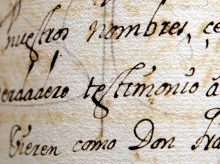 nuestros nombres, ce
erdadero testimonio a
Vieren como Don Fra